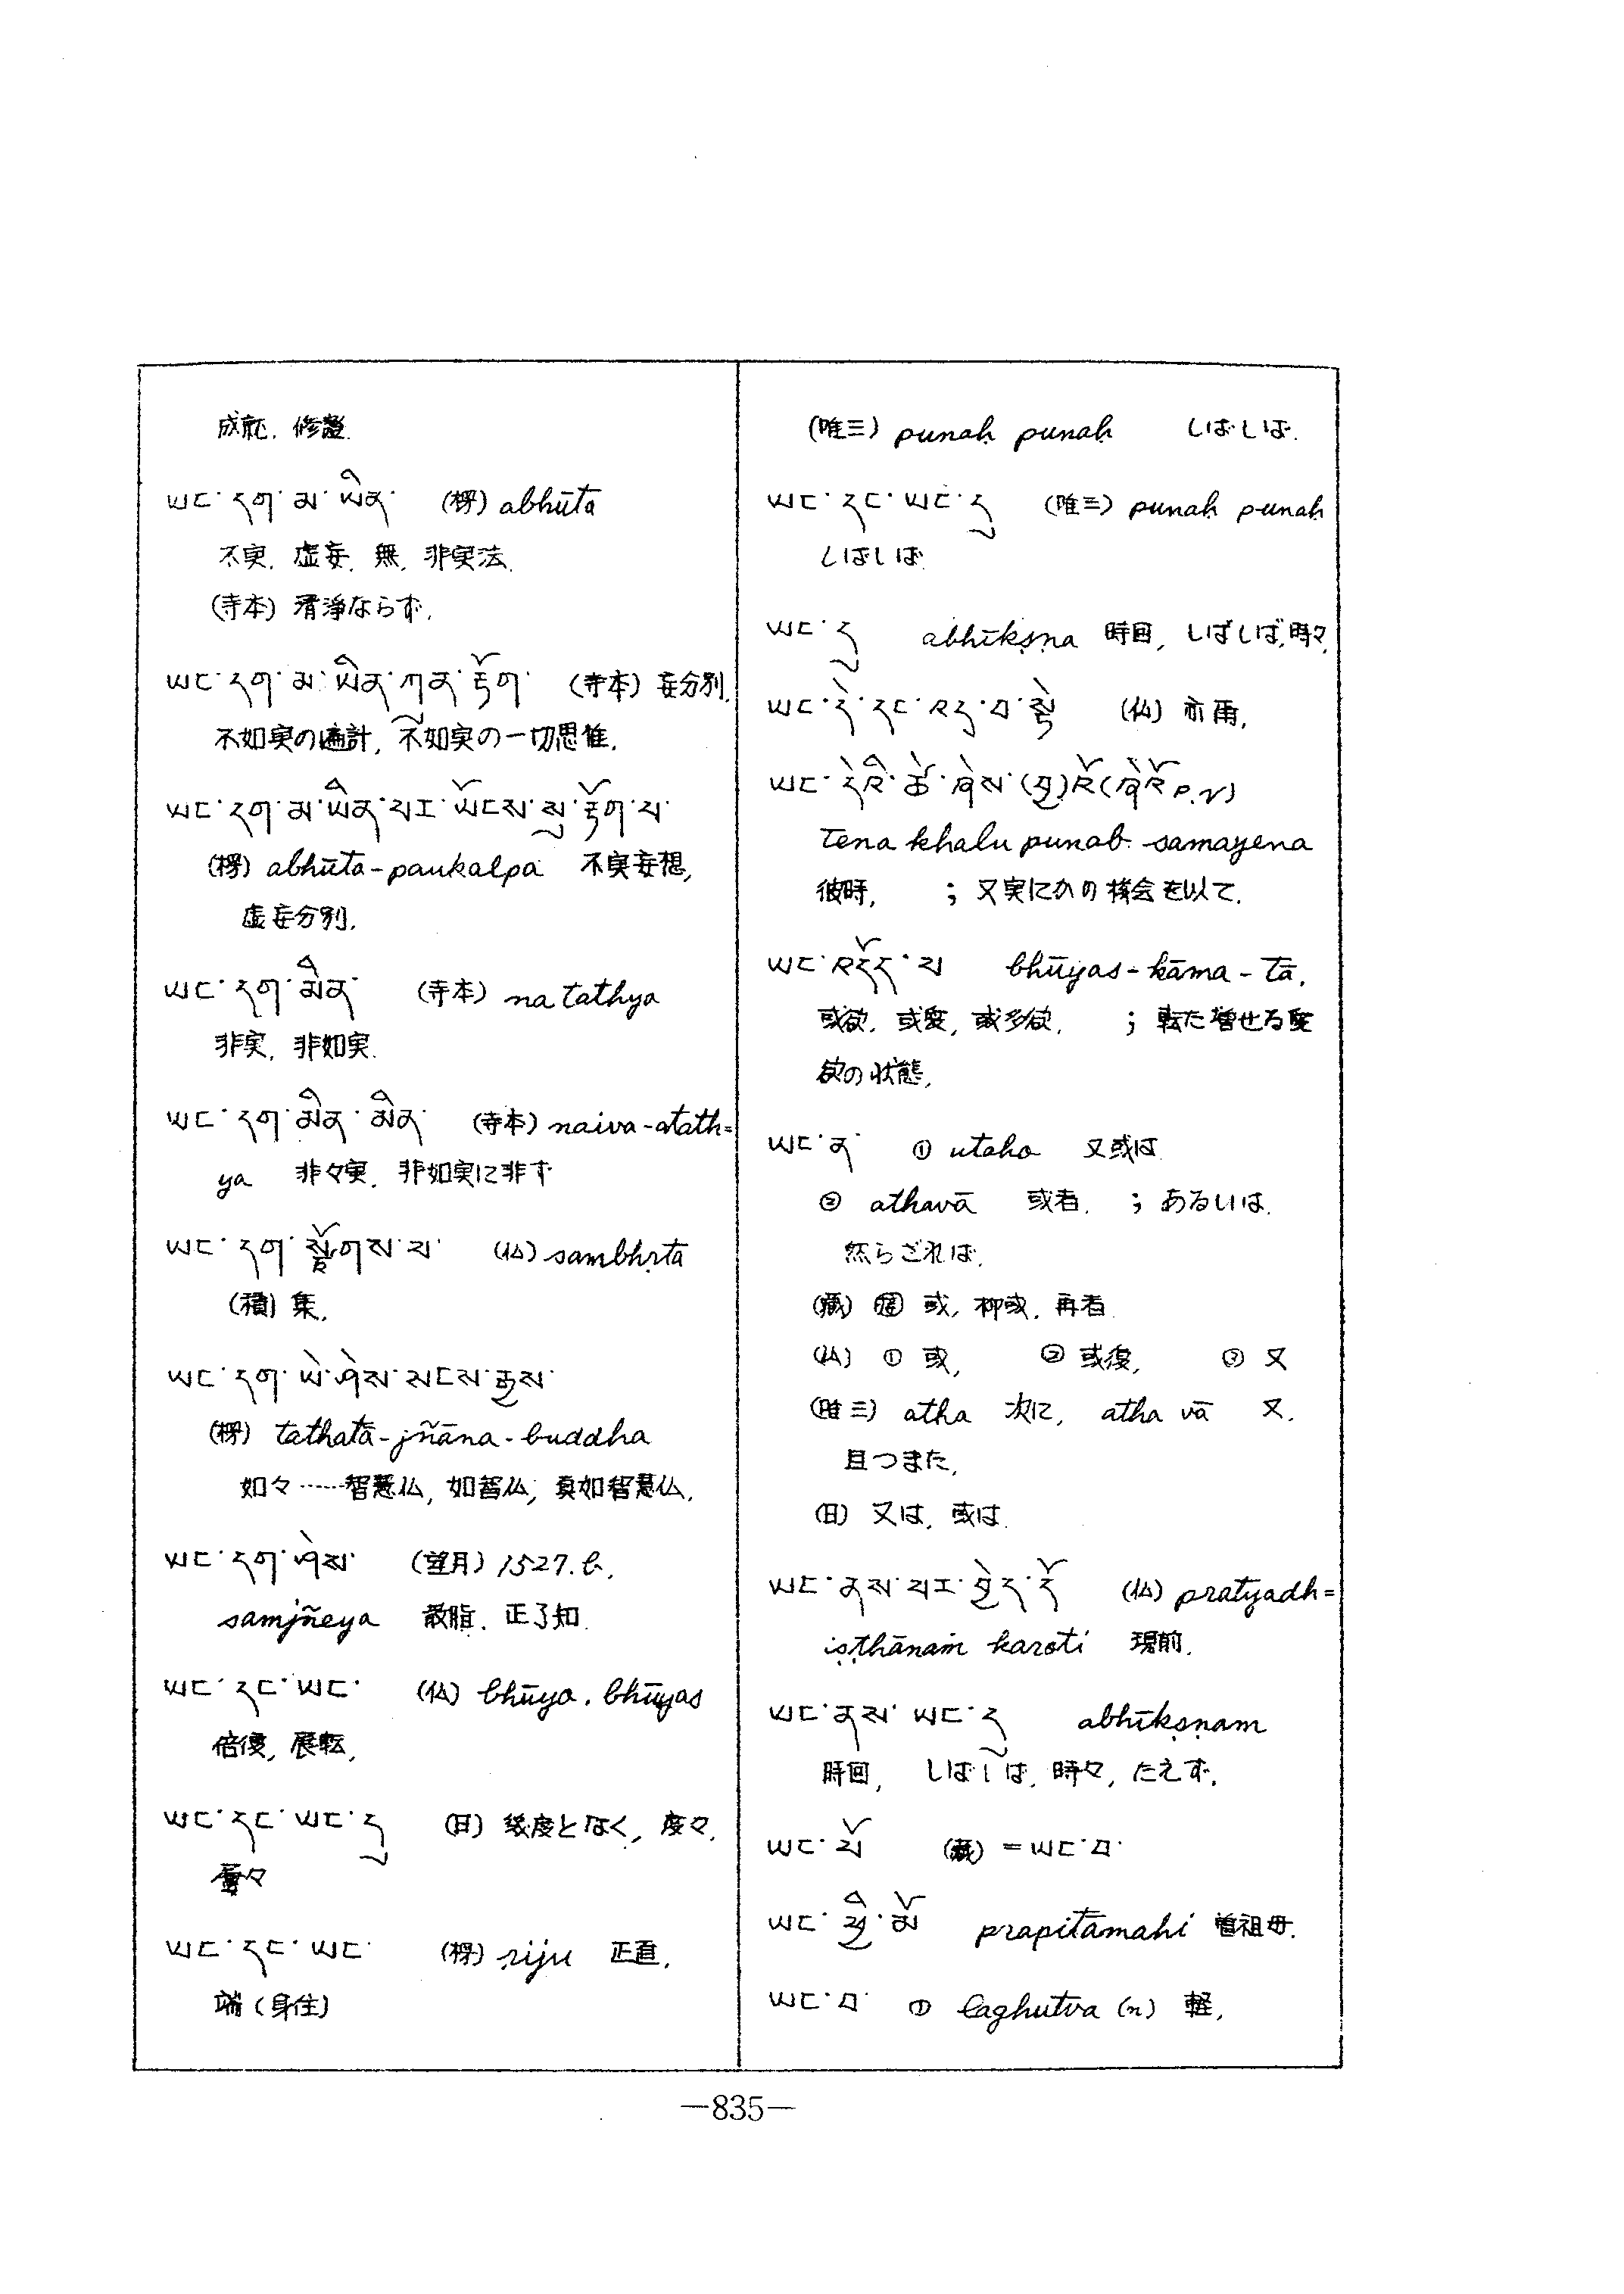 成就. 修證.
ཡང་དག་མ་ཡིན་ (楞) abhūta
不実. 虚妄. 無. 非実法.
(寺本) 清浄ならず.
ཡང་དག་མ་ཡིན་ཀུན་རྟོག་ (寺本) 妄分別.
不如実の遍計, 不如実の一切思惟.
ཡང་དག་མ་ཡིན་པར་ཡོངས་སུ་རྟོག་པ་
(楞) abhūta-paukalpa 不実妄想,
虚妄分別.
ཡང་དག་མིན་ (寺本) na tathya
非実, 非如実.
ཡང་དག་མིན་མིན་ (寺本) naiva-atath=
ya 非々実. 非如実に非ず
ཡང་དག་སྩོགས་པ་ (仏) sambhṛta
(積) 集.
ཡང་དག་ཡེ་ཤེས་སངས་རྒྱས་
(楞) tathatā-jñāna-buddha
如々……智慧仏, 如智仏; 真如智慧仏.
ཡང་དག་ཤེས་ (望月) 1527. b.
samjñeya 散脂. 正了知.
ཡང་དང་ཡང་ (仏) bhūya. bhūyas
倍復, 展転,
ཡང་དང་ཡང་དུ (日) 幾度となく, 度々.
屢々
ཡང་དང་ཡང་ (楞) ṛiju 正直.
端 (身住)
(唯三) punaḥ punaḥ しばしば.
ཡང་དང་ཡང་དུ (唯三) punaḥ punaḥ
しばしば.
ཡང་དུ abhīkṣna 時回, しばしば, 時々.
ཡང་དེ་དང་འདྲ་བ་སྟེ (仏) 亦爾.
ཡང་དེའི་ཚེ་ཞེས་(བྱ)འོ(ཞེའོ P. N)
tena khalu punab samayena
彼時, ; 又実にかの機会を以て.
ཡང་འདོད་པ bhūyas-kāma-tā.
或欲. 或愛, 或多欲. ; 転た増せる愛
欲の状態.
ཡང་ན་ ① utaho 又或は
② athavā 或者. ; あるいは.
然らざれば.
(蔵) 或, 抑或. 再者.
(仏) ① 或, ② 或復, ③ 又
(唯三) atha 次に, atha vā 又.
且つまた.
(日) 又は, 或は.
ཡང་ནས་པར་བྱེད་དོ (仏) pratyadh=
iṣṭhānaṁ karoti 現前.
ཡང་ནས་ཡང་དུ abhīkṣṇam
時回, しばしば, 時々, たえず.
ཡང་པོ (蔵) =ཡང་བ་
ཡང་ཕྱི་མོ prapitāmahi 曽祖母.
ཡང་བ་ ① laghutva (n) 軽,
—835—